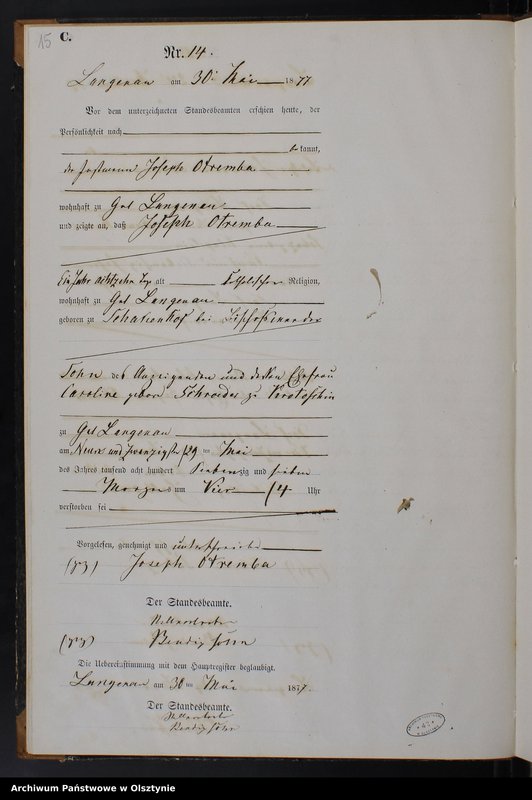 15
C.
Nr. 14.
Langenau am 30t Mai 1877
Vor dem unterzeichneten Standesbeamten erschien heute, der
Persönlichkeit nach
bekannt,
der Joseph Otremba
wohnhaft zu Gut Langenau
und zeigte an, daß Joseph Otremba
Ein Jahr achtzehn Tage alt Katholischer Religion,
wohnhaft zu Gut Langenau
geboren zu bei
Sohn des Anzeigenden und dessen Ehefrau
Caroline geborn Schroeder zu
zu Gut Langenau
am Neun und zwanzigste /29 ten Mai
des Jahres tausend acht hundert siebenzig und sieben
Morgens um Vier /4 Uhr
verstorben sei
Vorgelesen, genehmigt und unterschrieben
(gez) Joseph Otremba
Der Standesbeamte.
(gez)
Die Uebereinstimmung mit dem Hauptregister beglaubigt.
Langenau am 30 ten Mai 1877.
Der Standesbeamte.
Archiwum Państwowe w Olsztynie